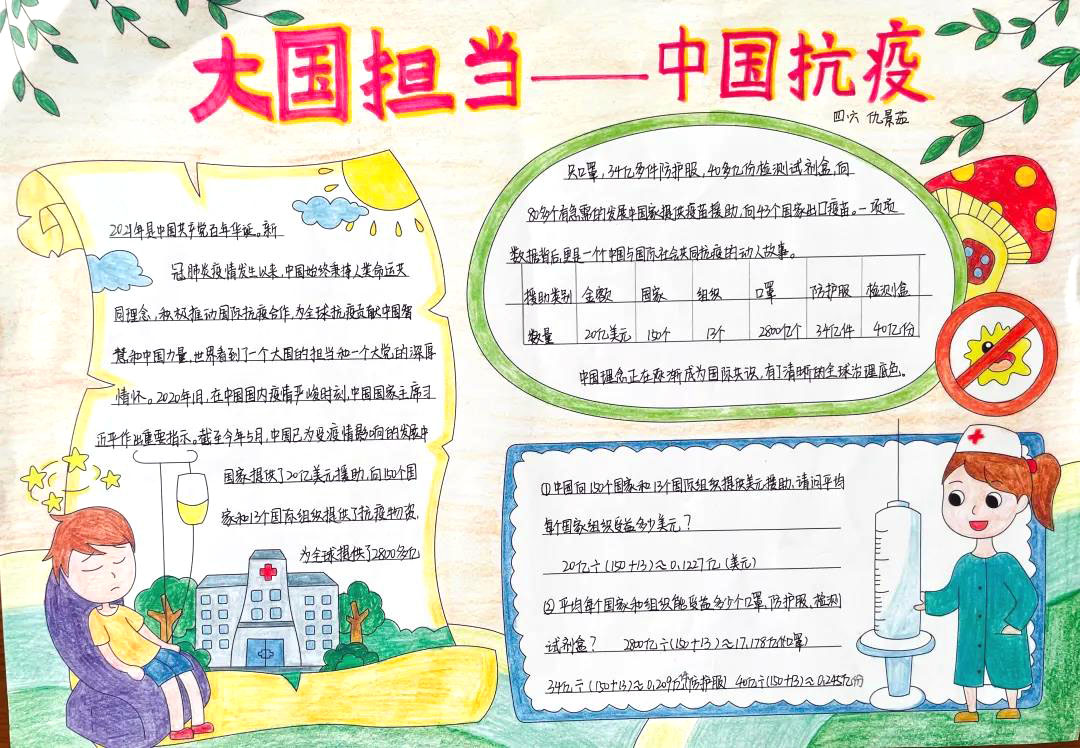 大国担当——中国抗疫
四.六 仇景茹
2021年是中国共产党百年华诞。新
冠肺炎疫情发生以来,中国始终秉持人类命运共
同理念,积极推动国际抗疫合作,为全球抗疫贡献中国智
慧和中国力量,世界看到了一个大国的担当和一个大党的深厚
情怀。2020年旧,在中国国内疫情严峻时刻,中国国家主席习
近平作出重要指示。截至今年5月,中国已为受疫情影响的发展中
国家提供了20亿美元援助,向150个国
家和13个国际组织提供了抗疫物资,
为全球提供了2800多亿
只口罩,34亿多件防护服,40多亿份检测试剂盒,向
80多个有急需的发展中国家提供疫苗援助,向43个国家出口疫苗。一项项
数据背后,更是一个中国与国际社会共同抗疫的动人故事。
援助类别 金额 国家 组织 口罩 防护服 检测盒
数量 20亿美元 150个 13个 2800亿个 34亿件 40亿份
中国理念正在逐渐成为国际共识,有了清晰的全球治理底色。
①中国向150个国家和13个国际组织提供美元援助,请问平均
每个国家组织受益多少美元?
20亿÷(150+13)≈0.1227亿(美元)
②平均每个国家和组织能受益多少个口罩,防护服、检测
试剂盒? 2800亿÷(150+13)≈17.178亿个(口罩)
34亿÷(150+13)≈0.209亿件(防护服) 40亿÷(150+13)≈0.245亿份